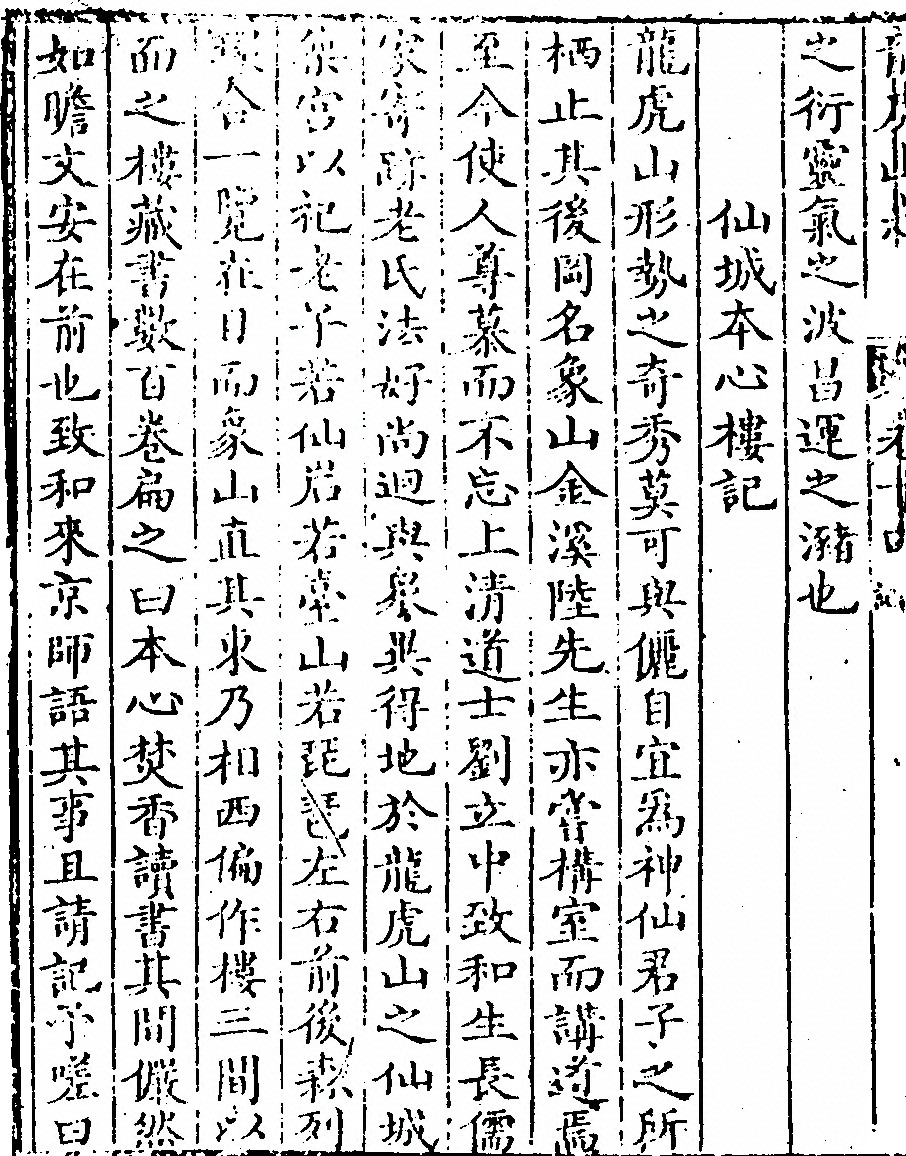 龍虎山志 卷十四
之衍靈氣之波昌運之瀦也
仙城本心樓記
龍虎山形勢之奇秀莫可與儷自宜爲神仙君子之所
栖止其後岡名象山金溪陸先生亦嘗構室而講道焉
至今使人尊慕而不忘上清道士劉立中致和生長儒
家寄跡老氏法好尚迥與衆異得地於龍虎山之仙城
築宮以祀老子若仙岩若臺山若琵琶左右前後森列
環合一覽在目而象山直其東乃相西偏作樓三間以
面之樓藏書數百卷扁之曰本心焚香讀書其間儼然
如瞻文安在前也致和來京師語其事且請記予嗟曰